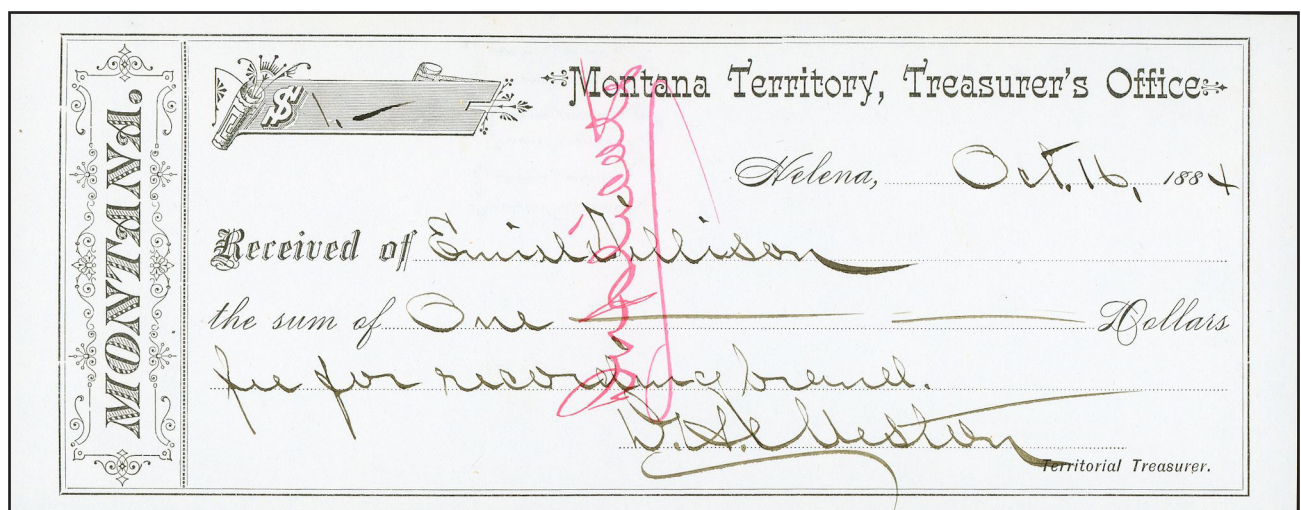 MONTANA.
$ 1. –
Montana Territory, Treasurer's Office
Helena, Oct. 16, 1884
Received of Emil Tillison
the sum of One Dollars
fee for recording brand.
D. H. Weston
Territorial Treasurer.